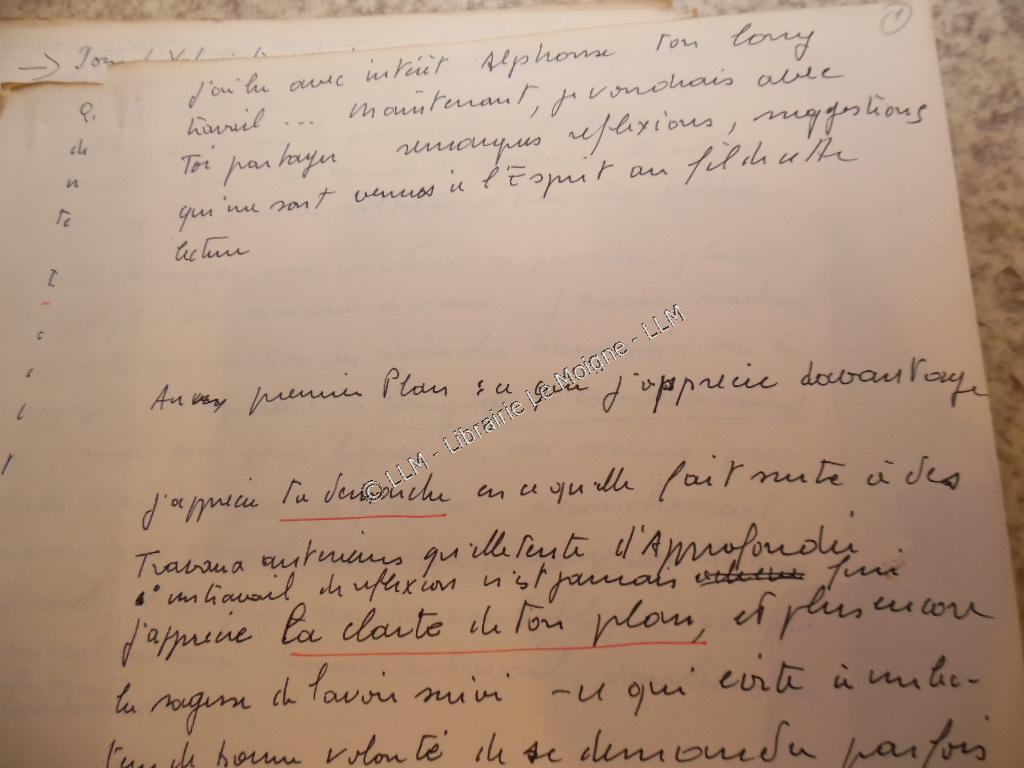 1
j'ai lu avec intérêt Alphonse ton long
travail ... maintenant, je voudrais avec
Toi partager remarques réflexions, suggestions
qui me sont venues à l'Esprit au fil de cette
lecture
Au premier Plan : ce que j'apprécie davantage
j'apprécie ta démarche en ce qu'elle fait suite à des
Travaux antérieurs qu'elle tente d'Approfondir
un travail de réflexion n'est jamais fini
j'apprécie la clarté de ton plan, et plus encore
la sagesse de l'avoir suivi - ce qui évite à un lec-
teur de bonne volonté de se demander parfois
© LLM - Librairie Le Moigne - LLM